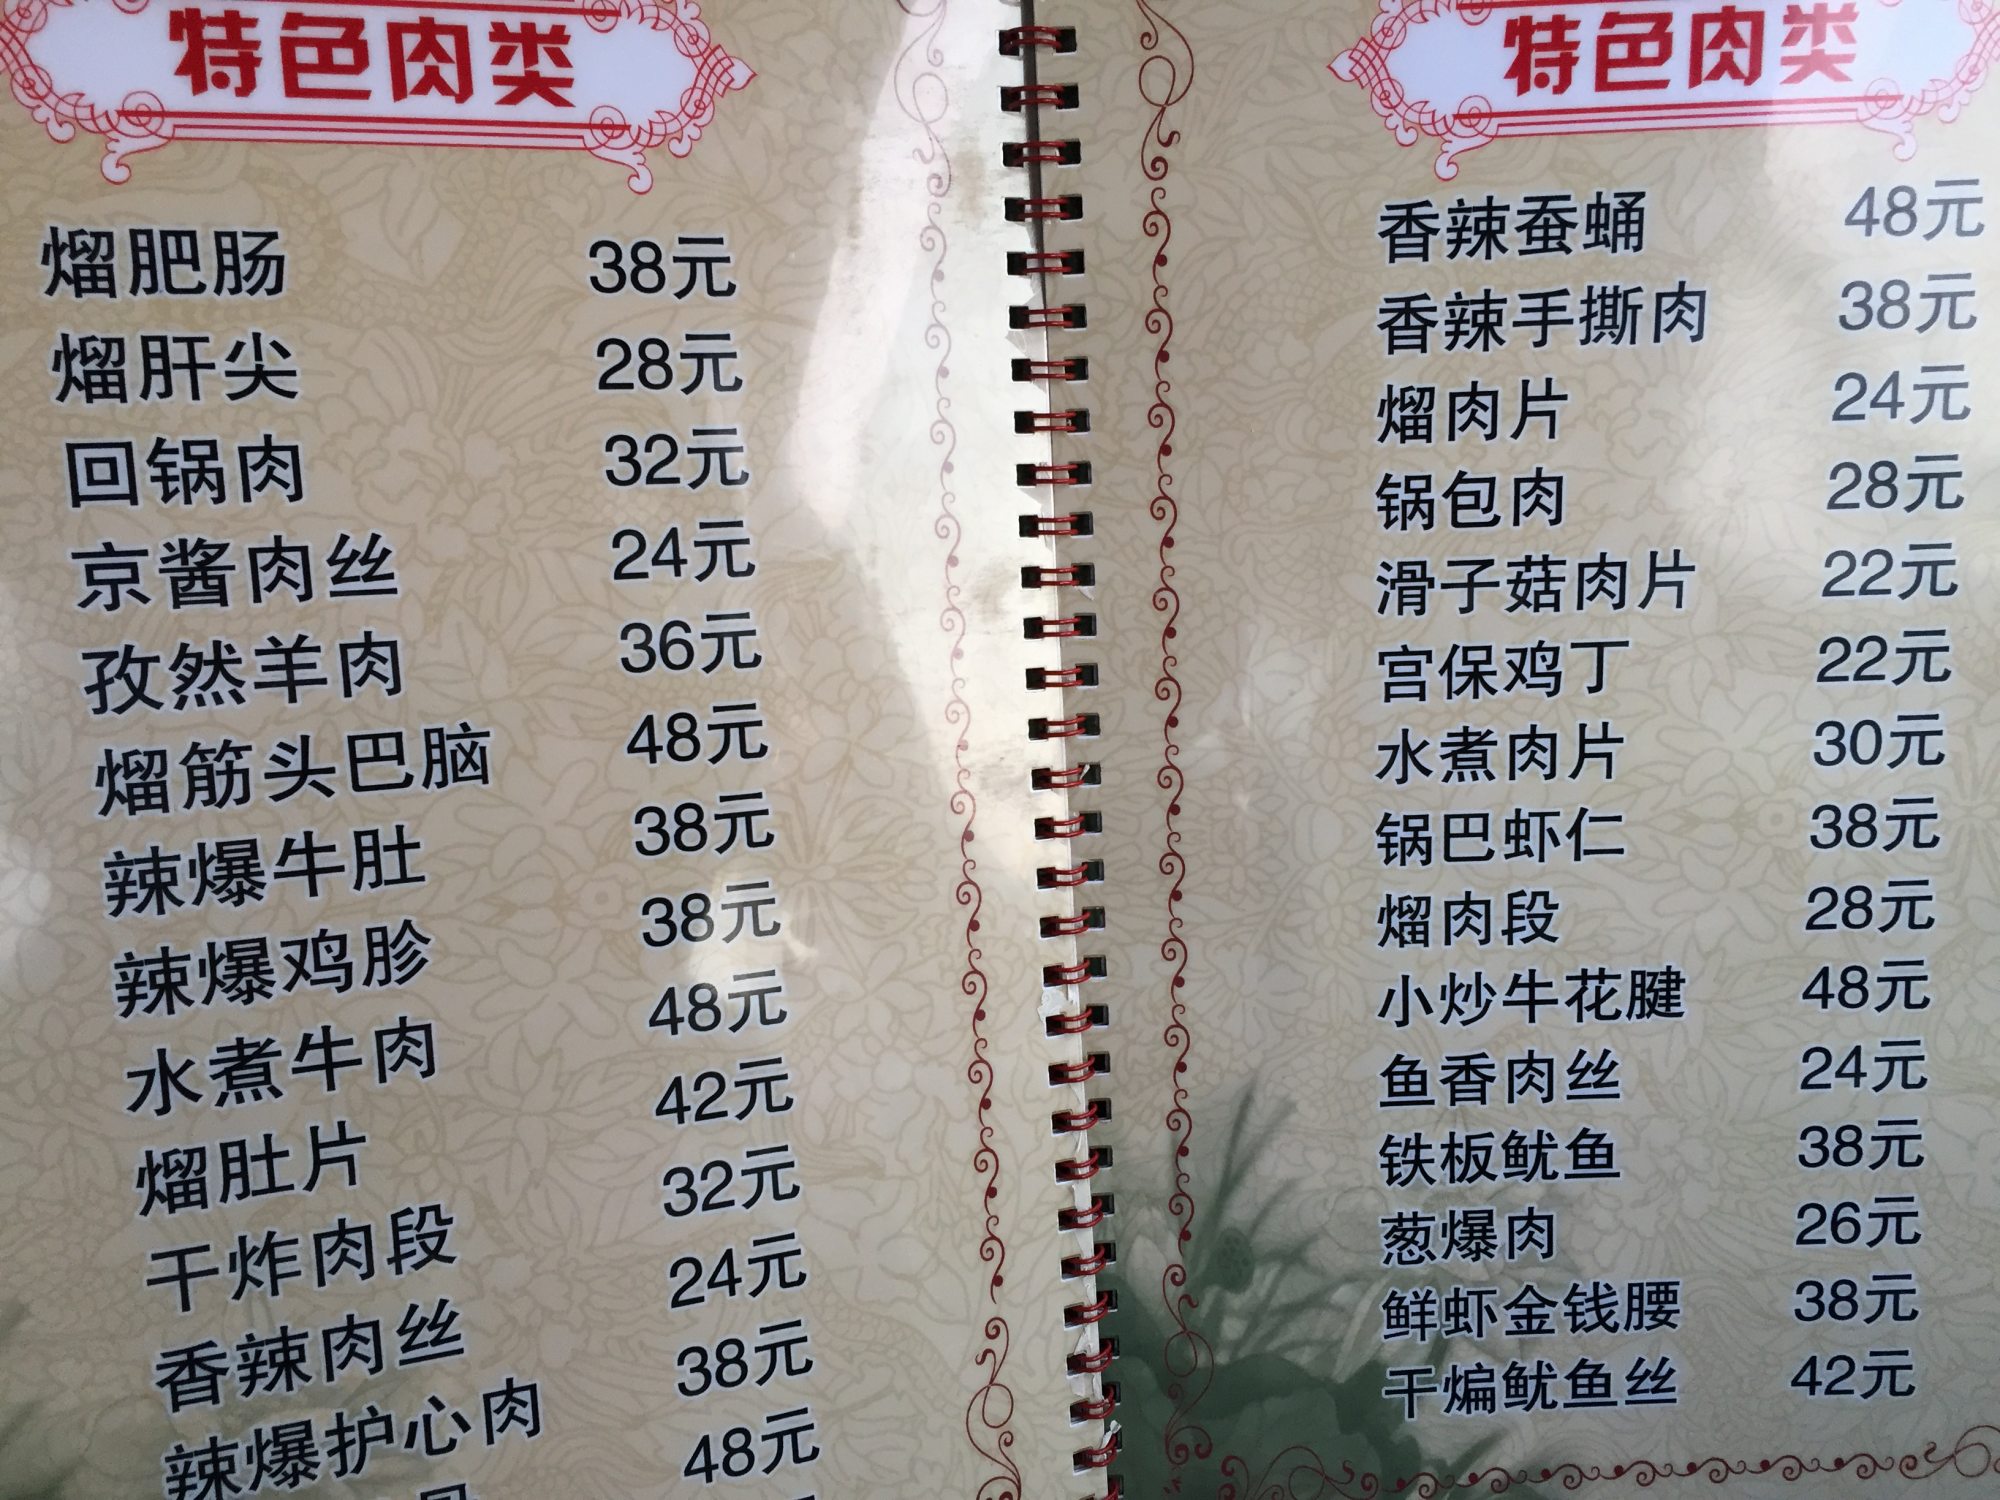 特色肉类
熘肥肠 38元
熘肝尖 28元
回锅肉 32元
京酱肉丝 24元
孜然羊肉 36元
熘筋头巴脑 48元
辣爆牛肚 38元
辣爆鸡胗 38元
水煮牛肉 48元
熘肚片 42元
干炸肉段 32元
香辣肉丝 24元
辣爆护心肉 38元
48元
特色肉类
香辣蚕蛹 48元
香辣手撕肉 38元
熘肉片 24元
锅包肉 28元
滑子菇肉片 22元
宫保鸡丁 22元
水煮肉片 30元
锅巴虾仁 38元
熘肉段 28元
小炒牛花腱 48元
鱼香肉丝 24元
铁板鱿鱼 38元
葱爆肉 26元
鲜虾金钱腰 38元
干煸鱿鱼丝 42元